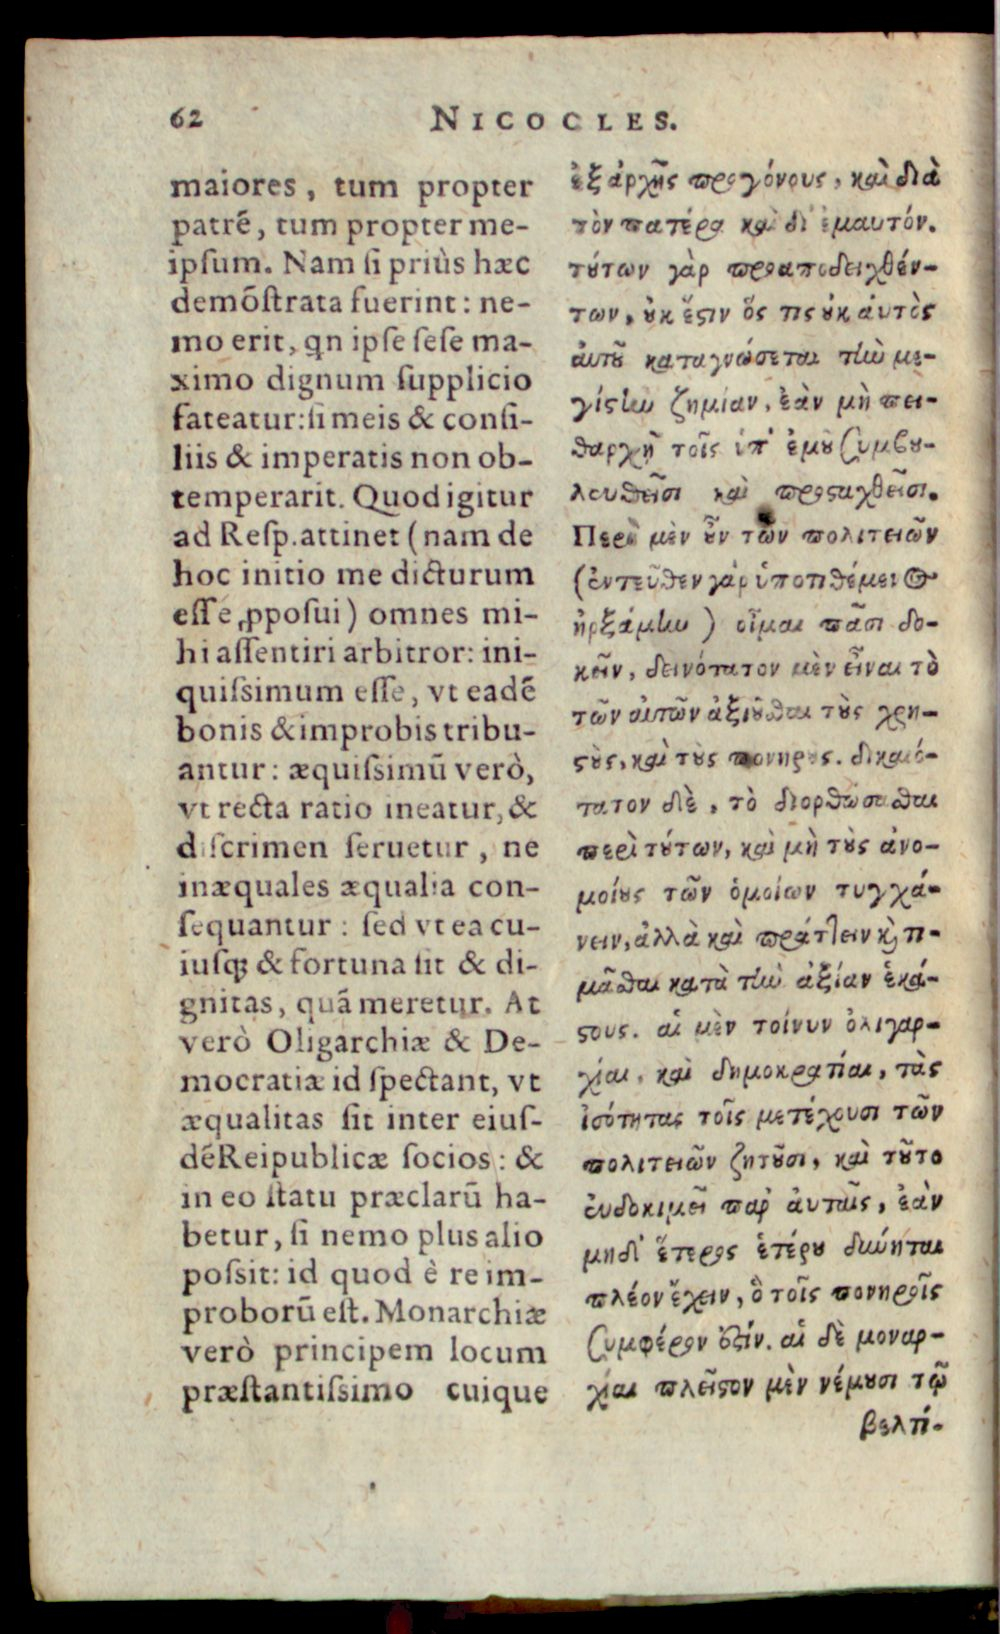 62 NICOCLES.
maiores, tum propter
patrẽ, tum propter me-
ipſum. Nam ſi priùs hæc
demõſtrata fuerint: ne-
mo erit, qn ipſe ſeſe ma-
ximo dignum ſupplicio
fateatur: ſi meis & conſi-
liis & imperatis non ob-
temperarit. Quod igitur
ad Reſp. attinet (nam de
hoc initio me dicturum
eſſe ꝓpoſui) omnes mi-
hi aſſentiri arbitror: ini-
quiſsimum eſſe, vt eadẽ
bonis & improbis tribu-
antur: æquiſsimũ verò,
vt recta ratio ineatur, &
diſcrimen ſeruetur, ne
inæquales æqualia con-
ſequantur: ſed vt ea cu-
iuſq; & fortuna ſit & di-
gnitas, quã meretur. At
verò Oligarchiæ & De-
mocratiæ id ſpectant, vt
æqualitas ſit inter eiuſ-
dẽ Reipublicæ ſocios: &
in eo ſtatu præclarũ ha-
betur, ſi nemo plus alio
poſsit: id quod è re im-
proborũ eſt. Monarchiæ
verò principem locum
præſtantiſsimo cuique
ἐξ ἀρχῆς προγόνους, καὶ διὰ
τὸν πατέρα καὶ δι' ἐμαυτόν.
τύτων γὰρ προαποδειχθέν-
των, ȣ̓κ ἔςιν ὅς τις ȣ̓κ ἀυτὸς
αὑτȣ͂ καταγνώσεται τὴν με-
γίςην ζημίαν, ἐὰν μὴ πει-
θαρχῇ τοῖς ὑπ' ἐμȣ͂ συμβȣ-
λευθεῖσι καὶ προςαχθεῖσι.
Περὶ μὲν ȣ̓͂ν τῶν πολιτειῶν
(ἐντεῦθεν γὰρ ὑποτιθέμενος
ἠρξάμην) οἶμαι πᾶσι δο-
κεῖν, δεινότατον μὲν εἶναι τὸ
τῶν αὐτῶν ἀξιȣ͂σθαι τȣ̀ς χρη-
ςȣ̀ς, καὶ τȣ̀ς πονηρȣ́ς. δικαιό-
τατον δὲ, τὸ διορθώσασθαι
περὶ τύτων, καὶ μὴ τȣ̀ς ἀνο-
μοίȣς τῶν ὁμοίων τυγχά-
νειν, ἀλλὰ καὶ πράττειν κ̀ τι-
μᾶσθαι κατὰ τὴν ἀξίαν ἑκά-
ςους. αἱ μὲν τοίνυν ὀλιγαρ-
χίαι, καὶ δημοκρατίαι, τὰς
ἰσότητας τοῖς μετέχουσι τῶν
πολιτειῶν ζητȣ͂σι, καὶ τȣ͂το
ἐυδοκιμεῖ παρ' ἀυταῖς, ἐὰν
μηδ' ἕτερος ἑτέρȣ δύνηται
πλέον ἔχειν, ὃ τοῖς πονηροῖς
συμφέρον ἐςίν. αἱ δὲ μοναρ-
χίαι πλεῖςον μὲν νέμȣσι τῷ
βελτί-